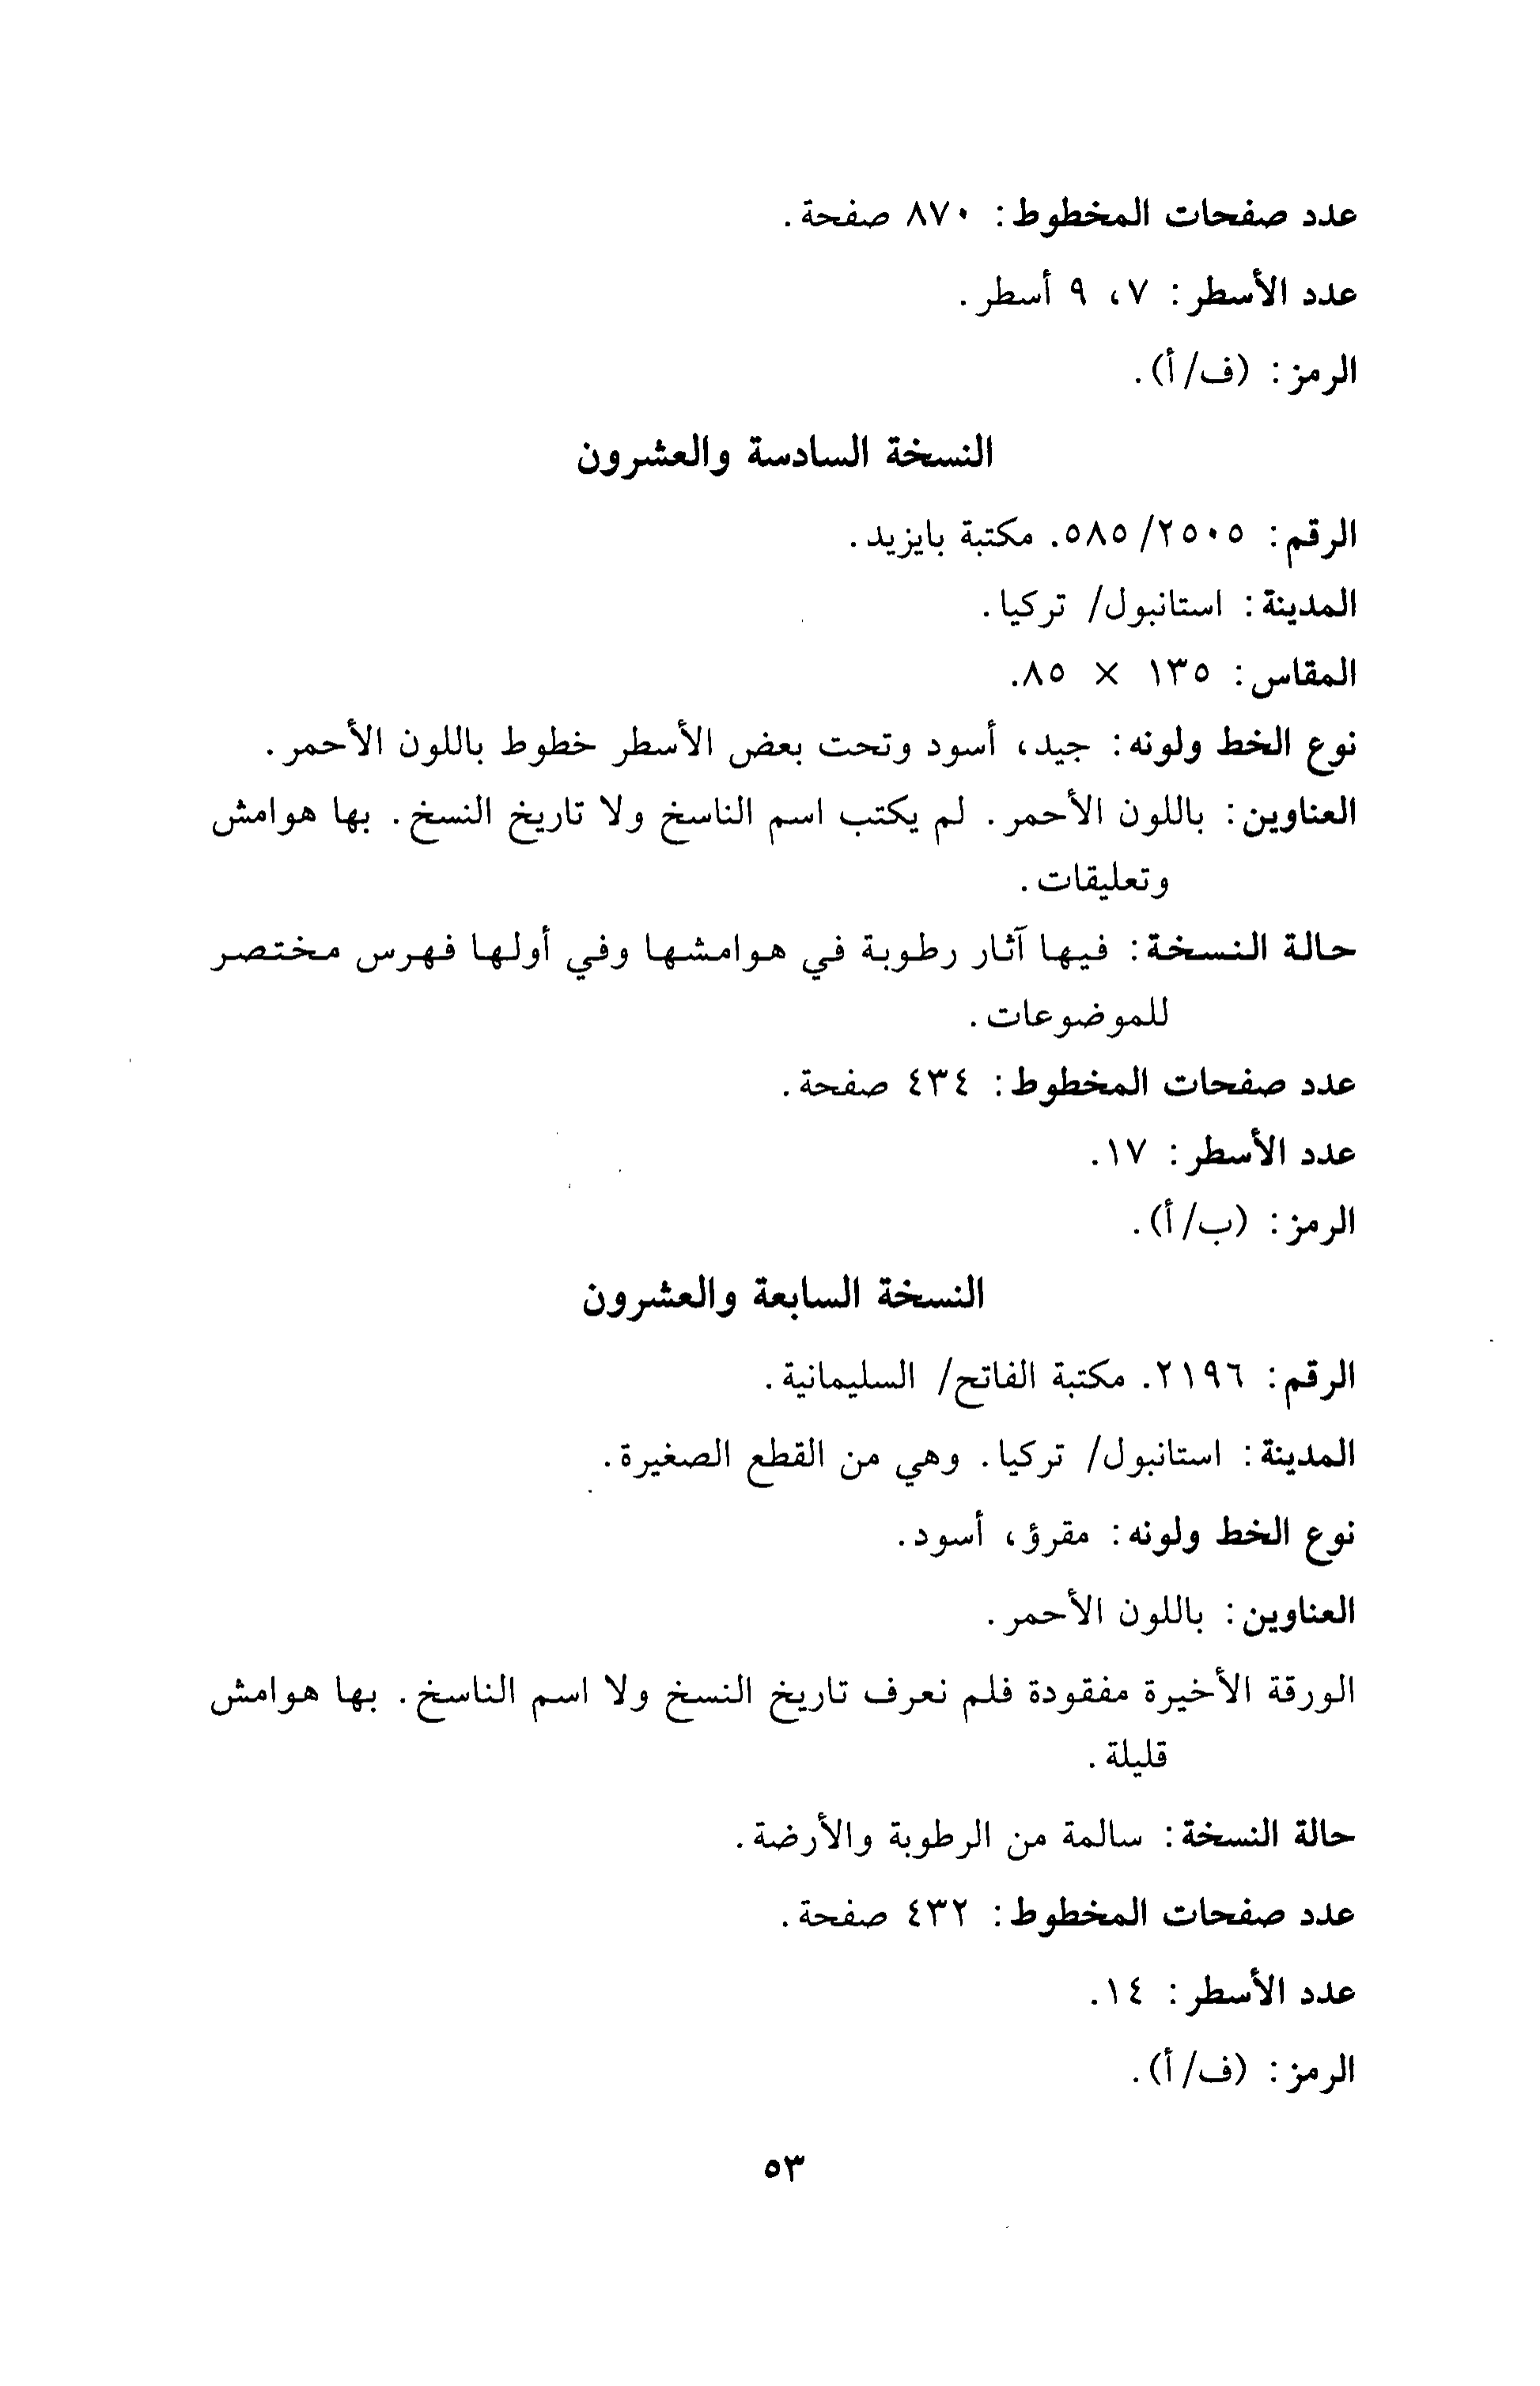 عدد صفحات المخطوط: ٨٧٠ صفحة.
عدد الأسطر: ٧، ٩ أسطر.
الرمز: (ف/أ).
النسخة السادسة والعشرون
الرقم: ٢٥٠٥/٥٨٥. مكتبة بايزيد.
المدينة: استانبول/ تركيا.
المقاس: ١٣٥ × ٨٥.
نوع الخط ولونه: جيد، أسود وتحت بعض الأسطر خطوط باللون الأحمر.
العناوين: باللون الأحمر. لم يكتب اسم الناسخ ولا تاريخ النسخ. بها هوامش
وتعليقات.
حالة النسخة: فيها آثار رطوبة في هوامشها وفي أولها فهرس مختصر
للموضوعات.
عدد صفحات المخطوط: ٤٣٤ صفحة.
عدد الأسطر: ١٧.
الرمز: (ب/أ).
النسخة السابعة والعشرون
الرقم: ٢١٩٦. مكتبة الفاتح/ السليمانية.
المدينة: استانبول/ تركيا. وهي من القطع الصغيرة.
نوع الخط ولونه: مقرؤ، أسود.
العناوين: باللون الأحمر.
الورقة الأخيرة مفقودة فلم نعرف تاريخ النسخ ولا اسم الناسخ. بها هوامش
قليلة.
حالة النسخة: سالمة من الرطوبة والأرضة.
عدد صفحات المخطوط: ٤٣٢ صفحة.
عدد الأسطر: ١٤.
الرمز: (ف/أ).
٥٣